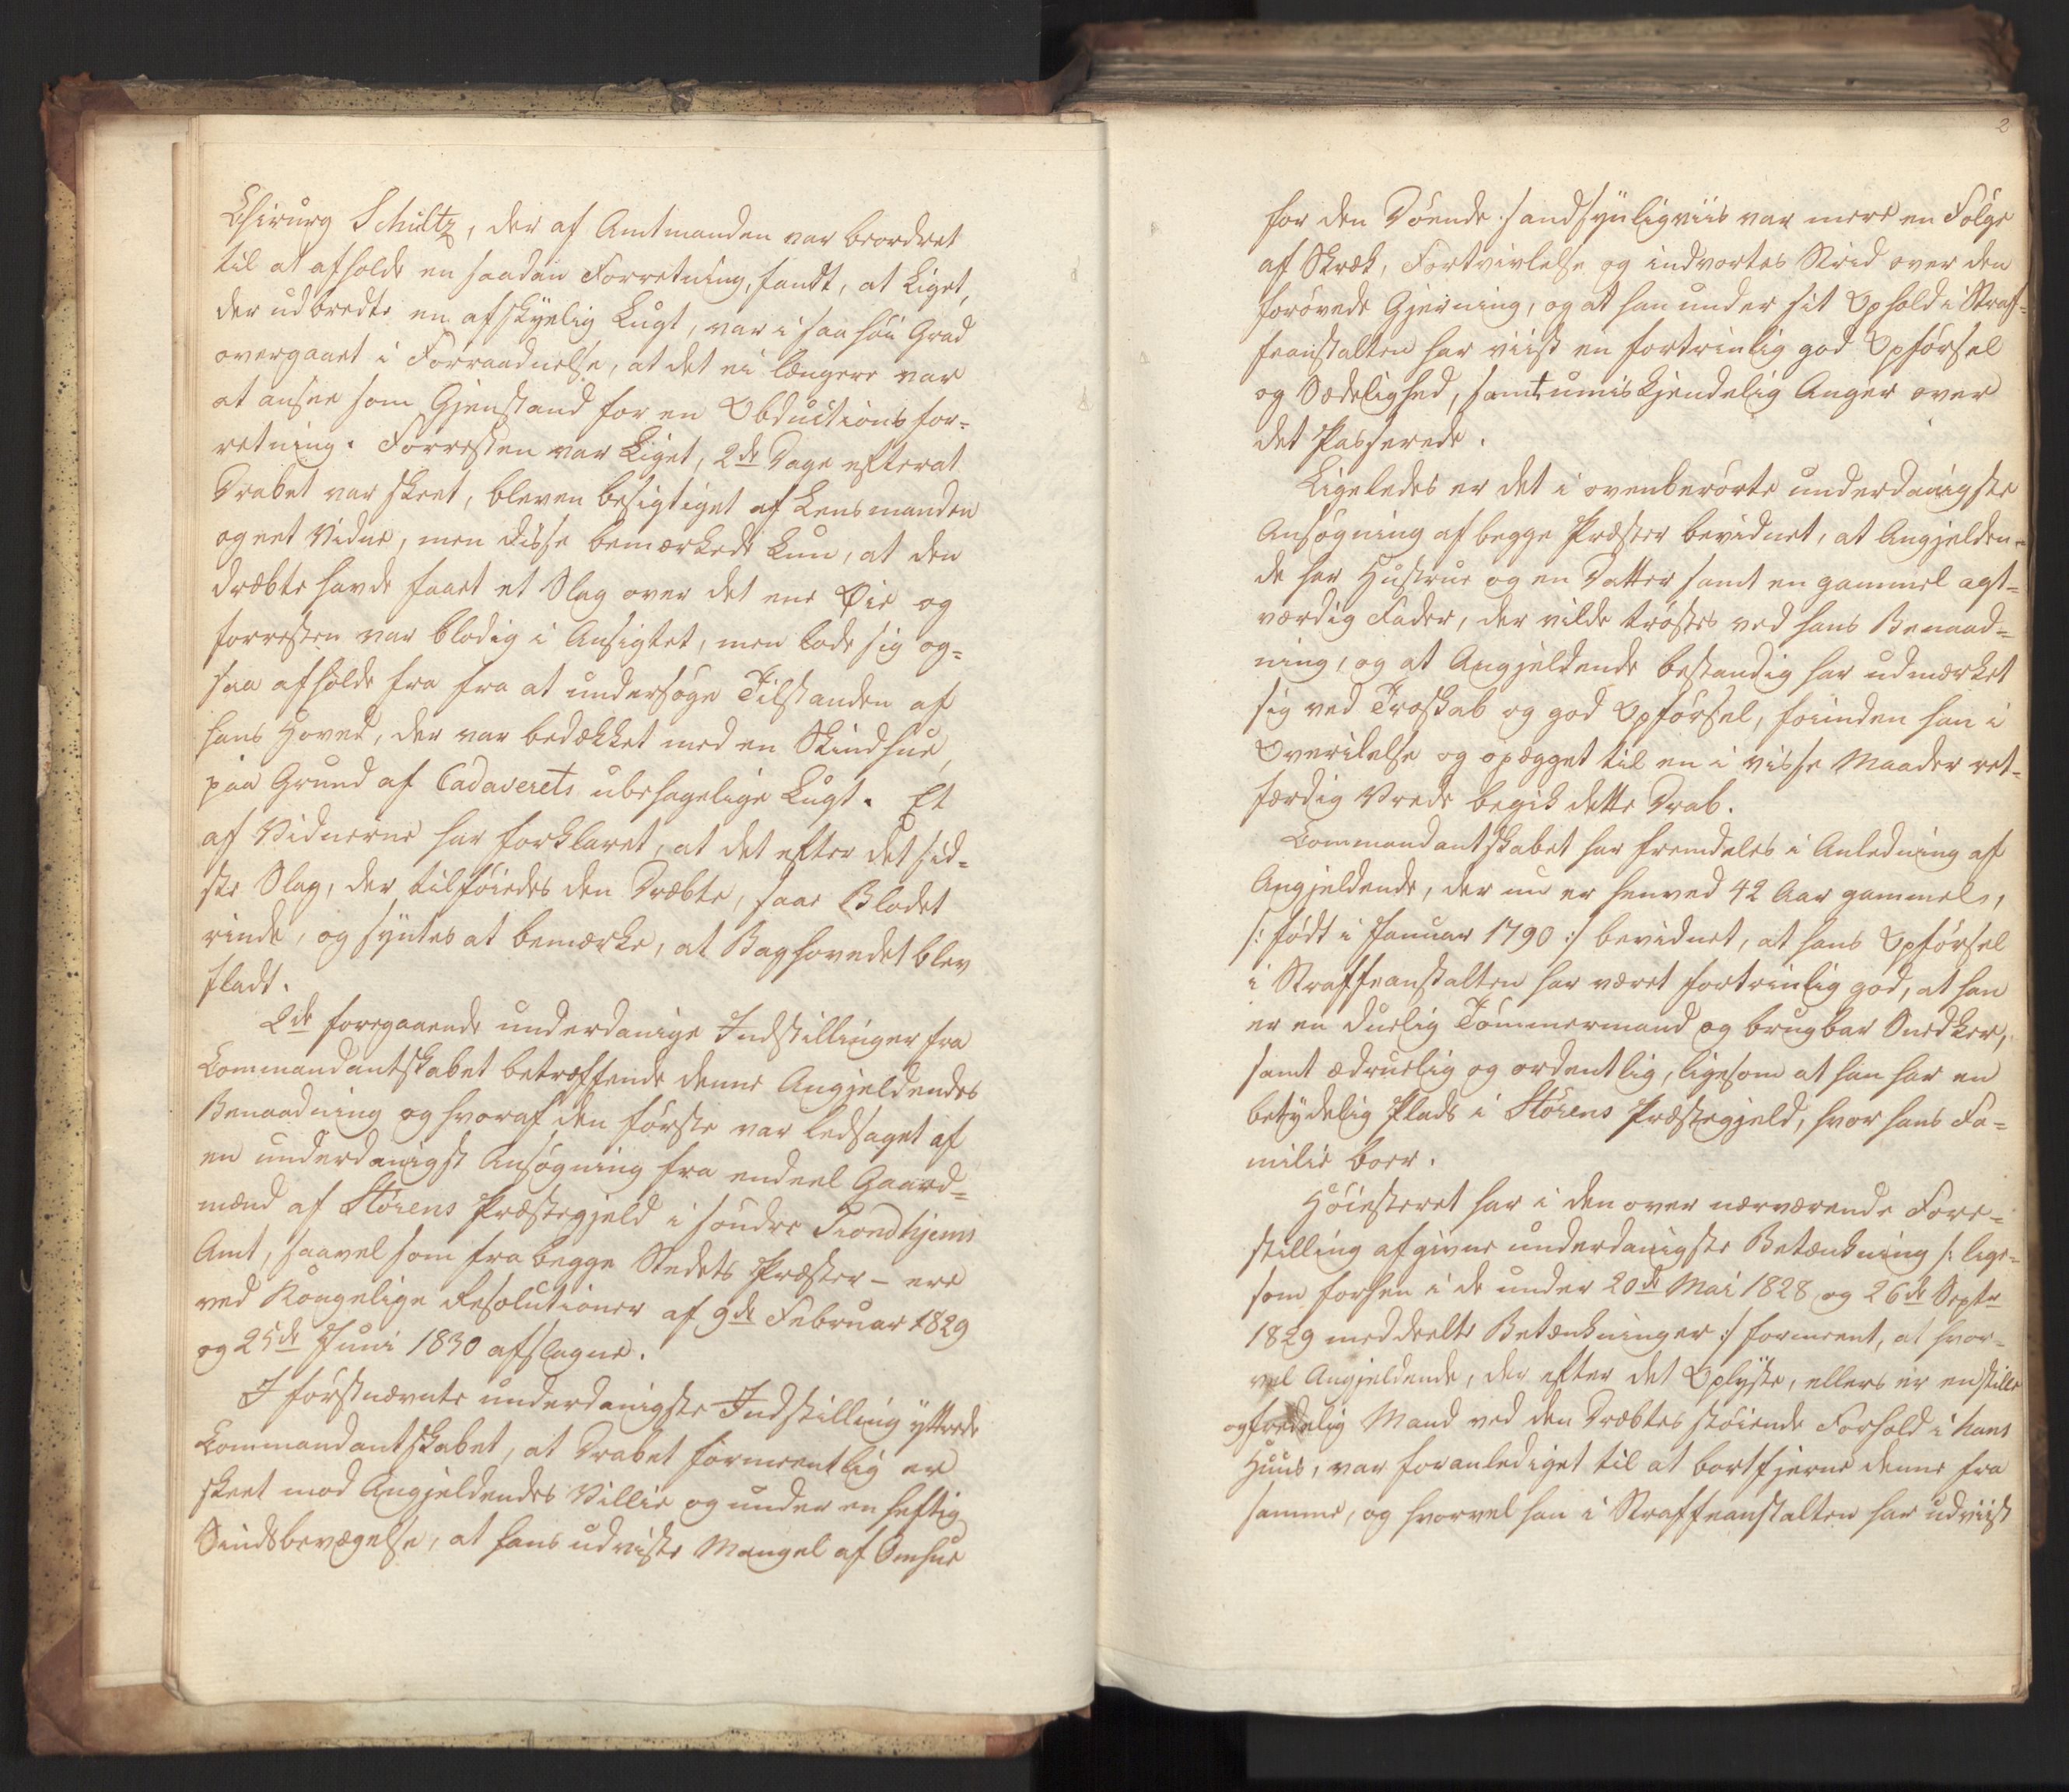 Chirurg Schultz, der af Amtmanden var beordret
til at afholde en saadan Forretning, fandt, at Liget,
der udbredte en afskyelig Lugt, var i saa høi Grad
overgaaet i Forraadnelse, at det ei længere var
at ansee som Gjenstand for en Obductionsfor=
retning. Forresten var Liget, 2de Dage efterat
Drabet var skeet, bleven besigtiget af Lensmanden
og eet Vidne, men disse bemærkede kun, at den
dræbte havde faaet et Slag over det ene Øie og
forresten var blodig i Ansigtet, men lode sig og=
saa afholde fra fra at undersøge Tilstanden af
hans Hoved, der var bedækket med en Skindhue,
paa Grund af Cadaverets ubehagelige Lugt. Et
af Vidnerne har forklaret, at det efter det sid=
ste Slag, der tilføiedes den Dræbte, saae Blodet
rinde, og syntes at bemærke, at Baghovedet blev
fladt.
2de foregaaende underdanige Indstillinger fra
Commandantskabet betræffende denne Angjeldendes
Benaadning og hvoraf den første var ledsaget af
en underdanigst Ansøgning fra endeel Gaard=
mænd af Störens Præstegjeld i søndre Trondhjems
Amt, saavelsom fra begge Stedets Præster – ere
ved Kongelige Resolutioner af 9de Februar 1829
og 25de Juni 1830 afslagne.
I førstnævnte underdanigste Indstilling yttrede
Commandantskabet, at Drabet formeentlig er
skeet mod Angjeldendes Villie og under en heftig
Sindsbevægelse, at hans udviste Mangel af Omhue
2
for den Døende sandsynligviis var mere en Følge
af Skræk, Fortvivlelse og indvortes Strid over den
forøvede Gjerning, og at han under sit Ophold i Straf=
feanstalten har viist en fortrinlig god Opførsel
og Sædelighed, samt umiskjendelig Anger over
det Passerede.
Ligeledes er det i ovenberørte underdanigste
Ansøgning af begge Præster bevidnet, at Angjelden=
de har Hustrue og en Datter samt en gammel agt=
værdig Fader, der vilde trøstes ved hans Benaad=
ning, og at Angjeldende bestandig har udmærket
sig ved Troskab og god Opførsel, forinden han i
Overilelse og opægget til en i visse Maader ret=
færdig Vrede begik dette Drab.
Commandantskabet har fremdeles i Anledning af
Angjeldende, der nu er henved 42 Aar gammel,
/: født i Januar 1790 :/ bevidnet, at hans Opførsel
i Straffeanstalten har været fortrinlig god, at han
er en duelig Tømmermand og brugbar Snedker,
samt ædruelig og ordentlig, ligesom at han har en
betydelig Plads i Störens Præstegjeld, hvor hans Fa=
milie boer.
Høiesteret har i den over nærværende Fore=
stilling afgivne underdanigste Betænkning /: lige=
som forhen i de under 20de Mai 1828 og 26de Septr
1829 meddeelte Betænkninger :/ formeent, at hvor=
vel Angjeldende, der efter det Oplyste, ellers er en stille
og fredelig Mand ved den Dræbtes støiende Forhold i hans
Huus, var foranlediget til at bortfjerne denne fra
samme, og hvorvel han i Straffeanstalten har udviist